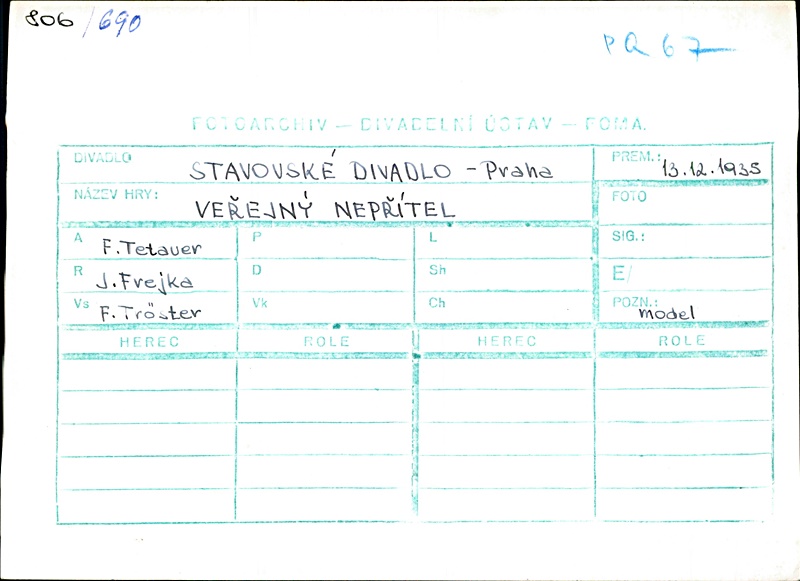 806/690
PQ 67
FOTOARCHIV — DIVADELNÍ ÚSTAV — FOMA.
DIVADLO STAVOVSKÉ DIVADLO - Praha PREM.: 13.12.1935
NÁZEV HRY: VEŘEJNÝ NEPŘÍTEL FOTO
A F. Tetauer P L SIG.:
R J. Frejka D Sh E/
Vs F. Tröster Vk Ch POZN.: model
HEREC ROLE HEREC ROLE